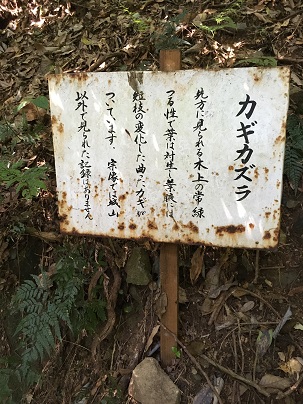 カギカズラ
地方に見られる木上の常緑
つる性で葉は対生し葉腋には
短枝の変化した曲ったカギが
ついています。宗像では城山
以外で見られた記録はありません